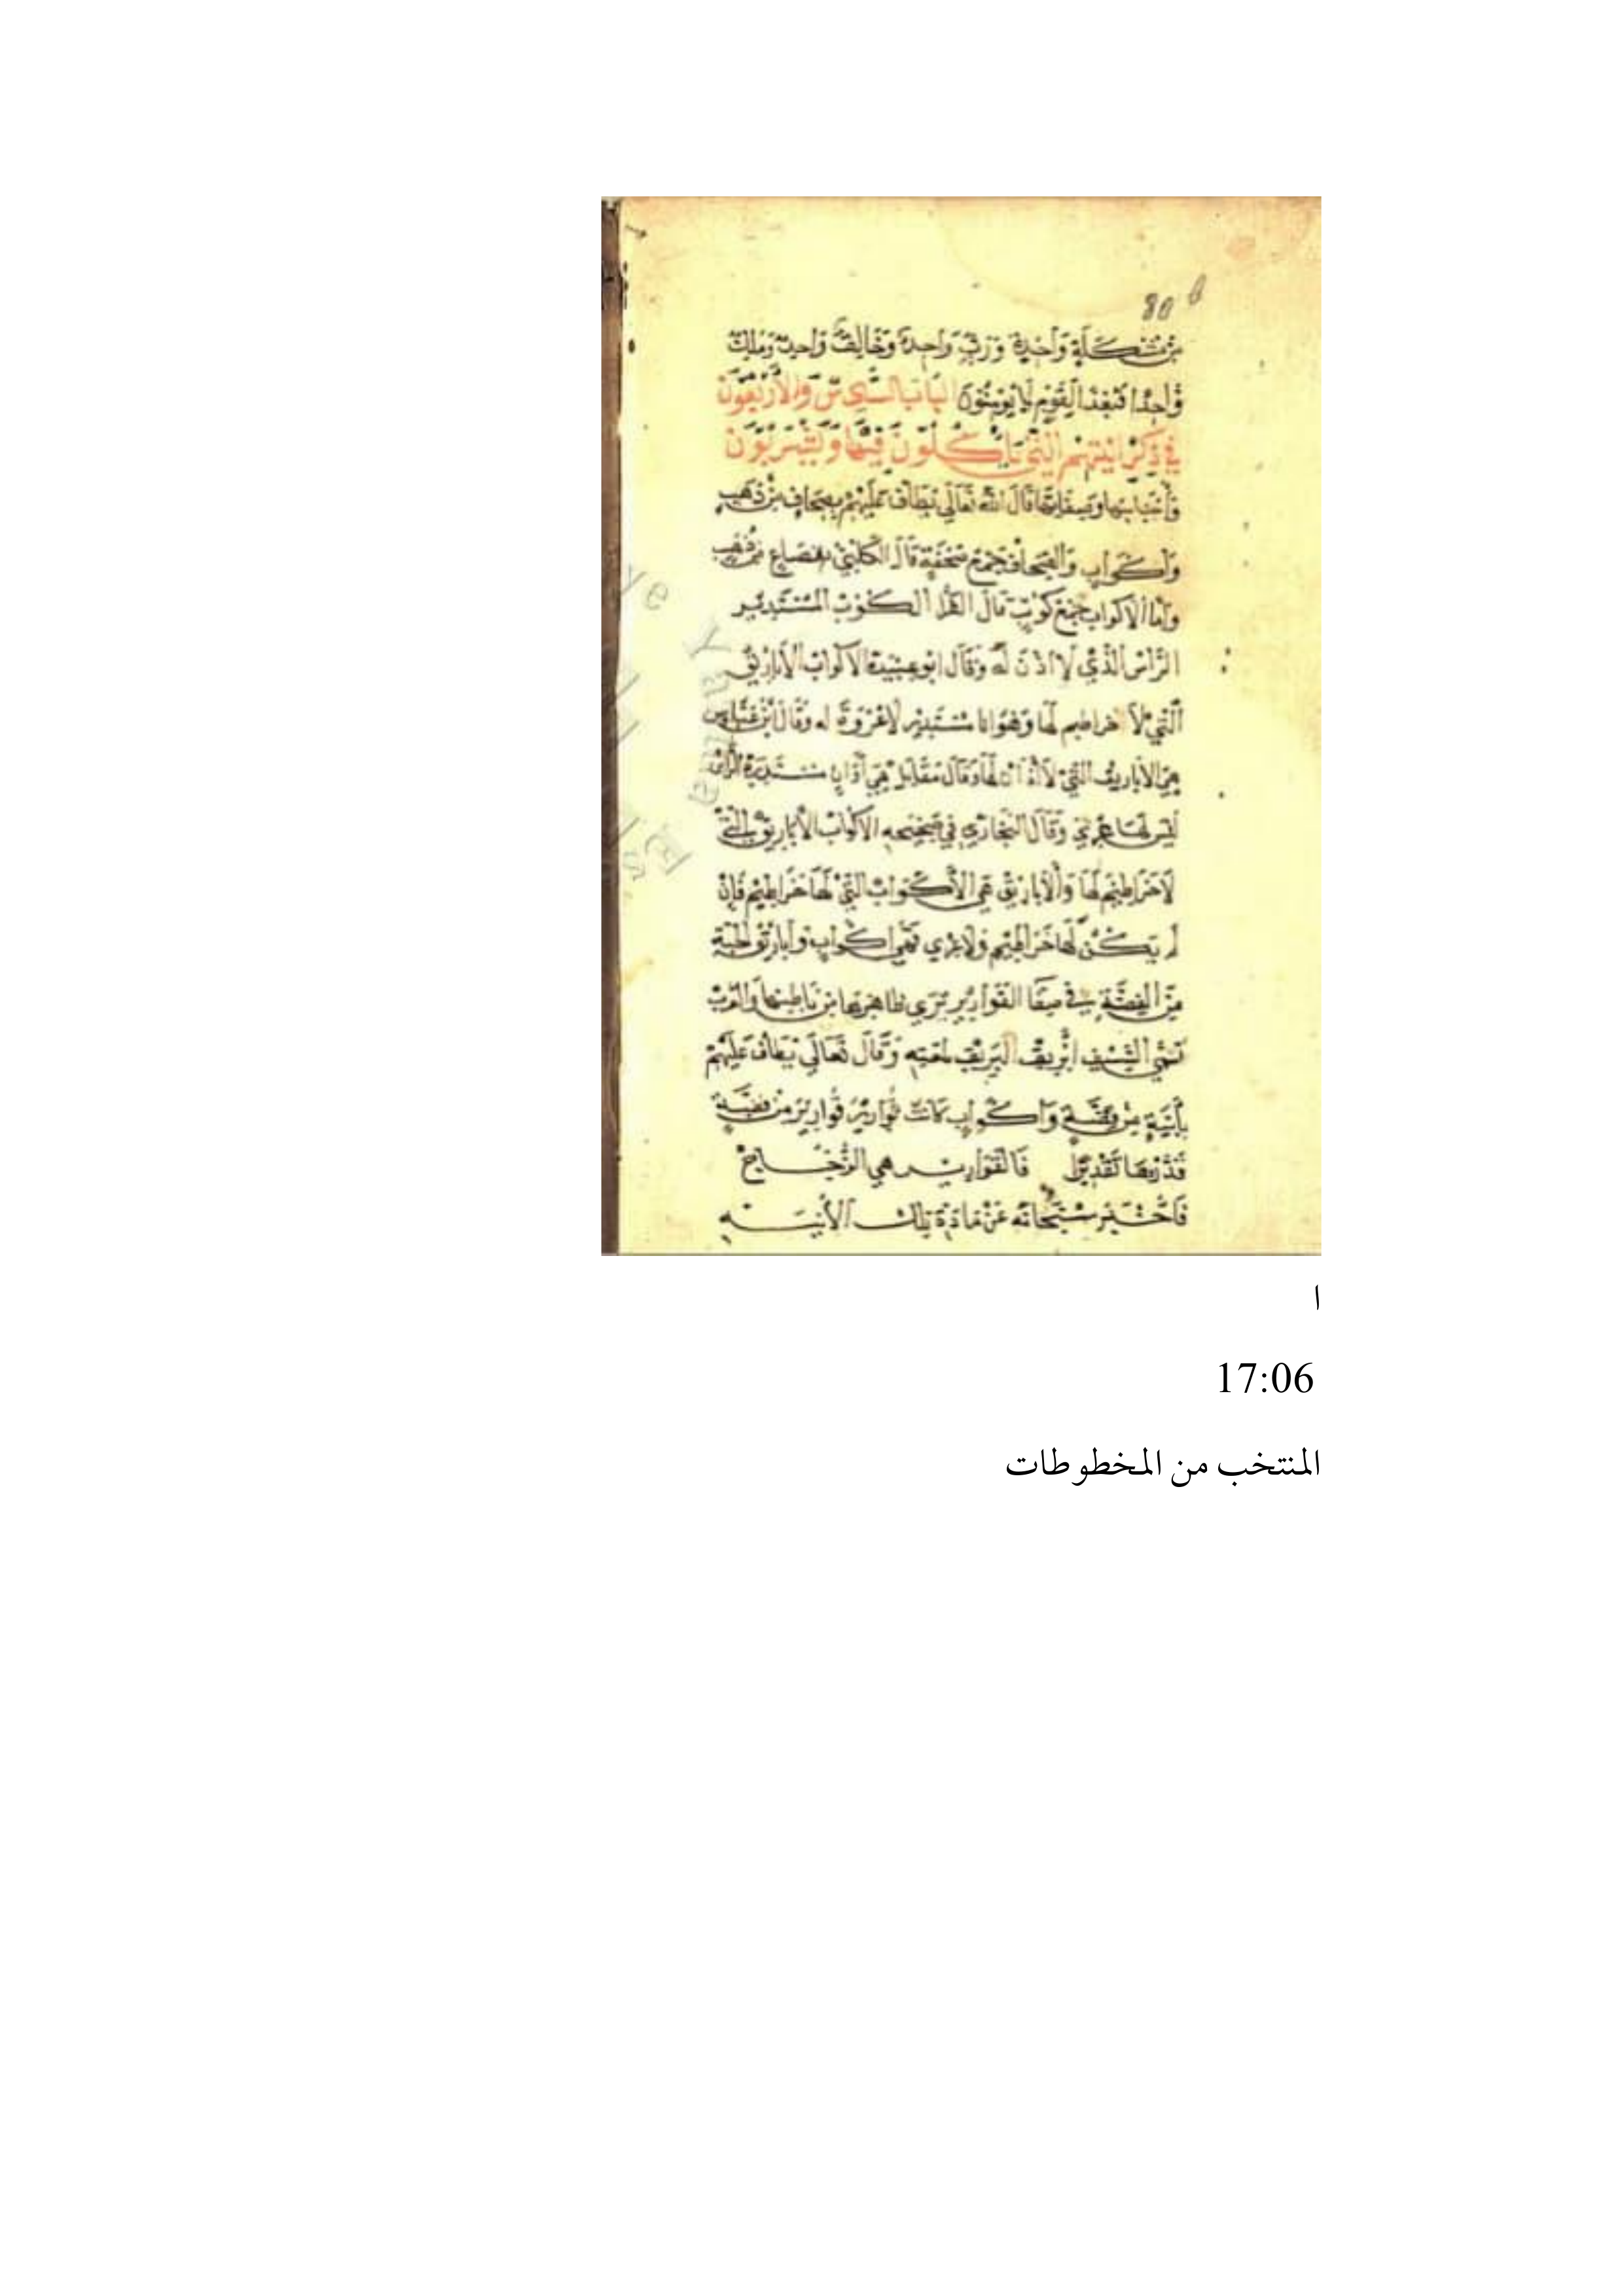 80
من مشكلة واحدة ورب واحد وخالق واحد وملك
واحدا فبعدا لقوم لا يؤمنون الباب السادس والأربعون
في ذكر انيتهم التي يأكلون فيها ويشربون
وأجناسها وصفاتها قال الله تعالى يطاف عليهم بصحاف من ذهب
وأكواب والصحاف جمع صحفة قال الكلبي بقصاع من ذهب
وأما الاكواب جمع كوب قال الفرا الكوب المستدير
الراس الذي لا اذن له وقال ابو عبيدة الاكواب الأباريق
التي لا خراطيم لها وهو انا مستدير لا عروة له وقال ابن عباس
هي الاباريق التي لا آذان لها وقال مقاتل هي أوان مستديرة الراس
ليس لها عرى وقال البخاري في صحيحه الاكواب الأباريق التي
لا خراطيم لها والأباريق هي الأكواب التي لها خراطيم فإن
لم يكن لها خراطيم ولا عرى فهي اكواب وأباريق الجنة
من الفضة في صفا القوارير يرى ظاهرها من باطنها والعرب
تسمي السيف ابريق لبريق لونه وقال تعالى يطاف عليهم
بآنية من فضة وأكواب كانت قوارير قوارير من فضة
قدروها تقديرا فالقوارير هي الزجاج
فأخبر سبحانه عن مادة تلك الآنيه
ا
17:06
المنتخب من المخطوطات